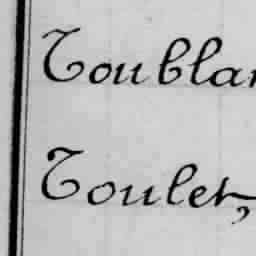 Toublan
Toulet,